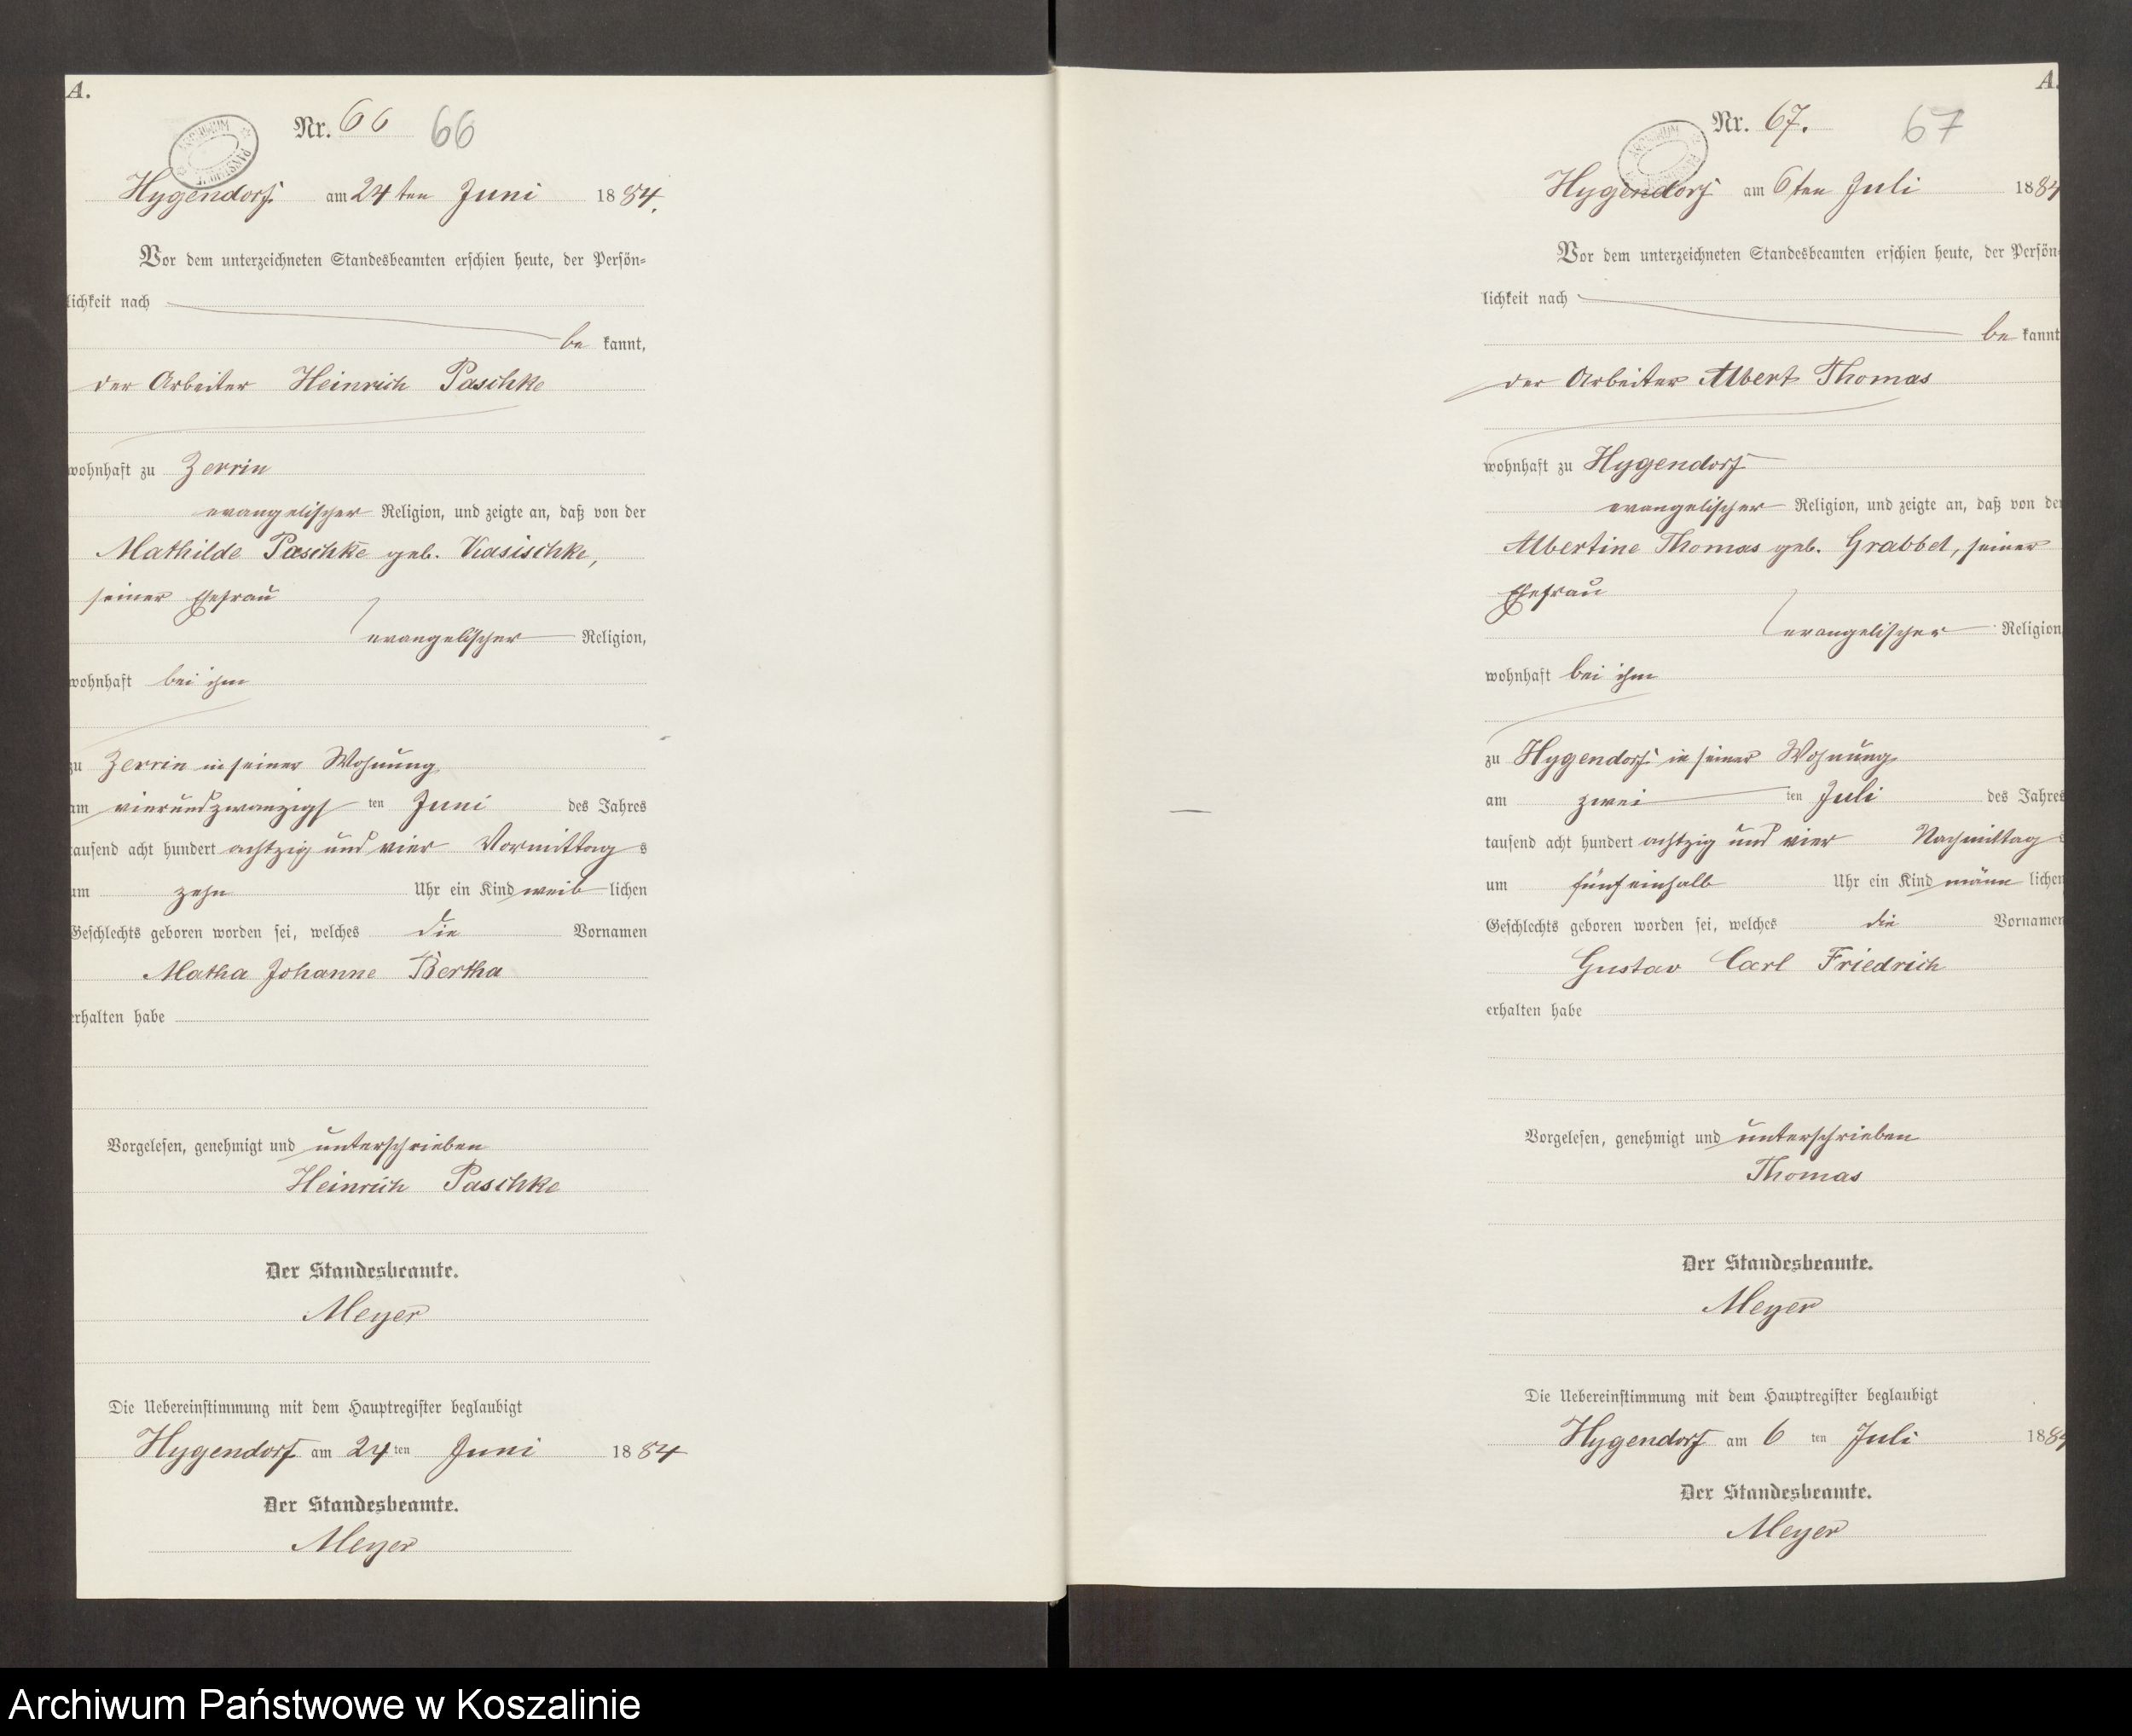 A.
Nr. 66 66
Hygendorf am 24ten Juni 1884.
Vor dem unterzeichneten Standesbeamten erschien heute, der Persön-
lichkeit nach
be kannt,
der Arbeiter Heinrich Paschke
wohnhaft zu Zerrin
evangelischer Religion, und zeigte an, daß von der
Mathilde Paschke geb. Kasischke,
seiner Ehefrau
evangelischer Religion,
wohnhaft bei ihm
zu Zerrin in seiner Wohnung
am vierundzwanzigsten Juni des Jahres
tausend acht hundert achtzig und vier Vormittags
um zehn Uhr ein Kind weiblichen
Geschlechts geboren worden sei, welches die Vornamen
Matha Johanne Bertha
erhalten habe
Vorgelesen, genehmigt und unterschrieben
Heinrich Paschke
Der Standesbeamte.
Meyer
Die Uebereinstimmung mit dem Hauptregister beglaubigt
Hygendorf am 24ten Juni 1884
Der Standesbeamte.
Meyer
A.
Nr. 67. 67
Hygendorf am 6ten Juli 1884
Vor dem unterzeichneten Standesbeamten erschien heute, der Persön-
lichkeit nach
be kannt
der Arbeiter Albert Thomas
wohnhaft zu Hygendorf
evangelischer Religion, und zeigte an, daß von der
Albertine Thomas geb. Grabbel, seiner
Ehefrau
evangelischer Religion
wohnhaft bei ihm
zu Hygendorf in seiner Wohnung
am zwei ten Juli des Jahres
tausend acht hundert achtzig und vier Nachmittags
um fünf einhalb Uhr ein Kind männlichen
Geschlechts geboren worden sei, welches die Vornamen
Gustav Carl Friedrich
erhalten habe
Vorgelesen, genehmigt und unterschrieben
Thomas
Der Standesbeamte.
Meyer
Die Uebereinstimmung mit dem Hauptregister beglaubigt
Hygendorf am 6 ten Juli 1884
Der Standesbeamte.
Meyer
Archiwum Państwowe w Koszalinie